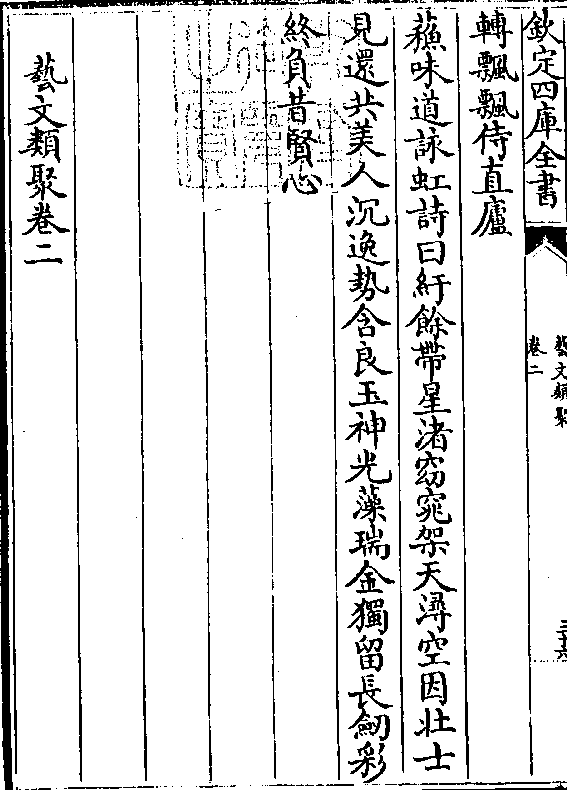 欽定四庫全書
藝文類聚
卷二
三十六
轉飄飄侍直廬
蘇味道詠虹詩曰紆餘帶星渚窈窕架天潯空因壯士
見還共美人沉逸勢含良玉神光藻瑞金獨留長劒彩
終負昔賢心
藝文類聚卷二